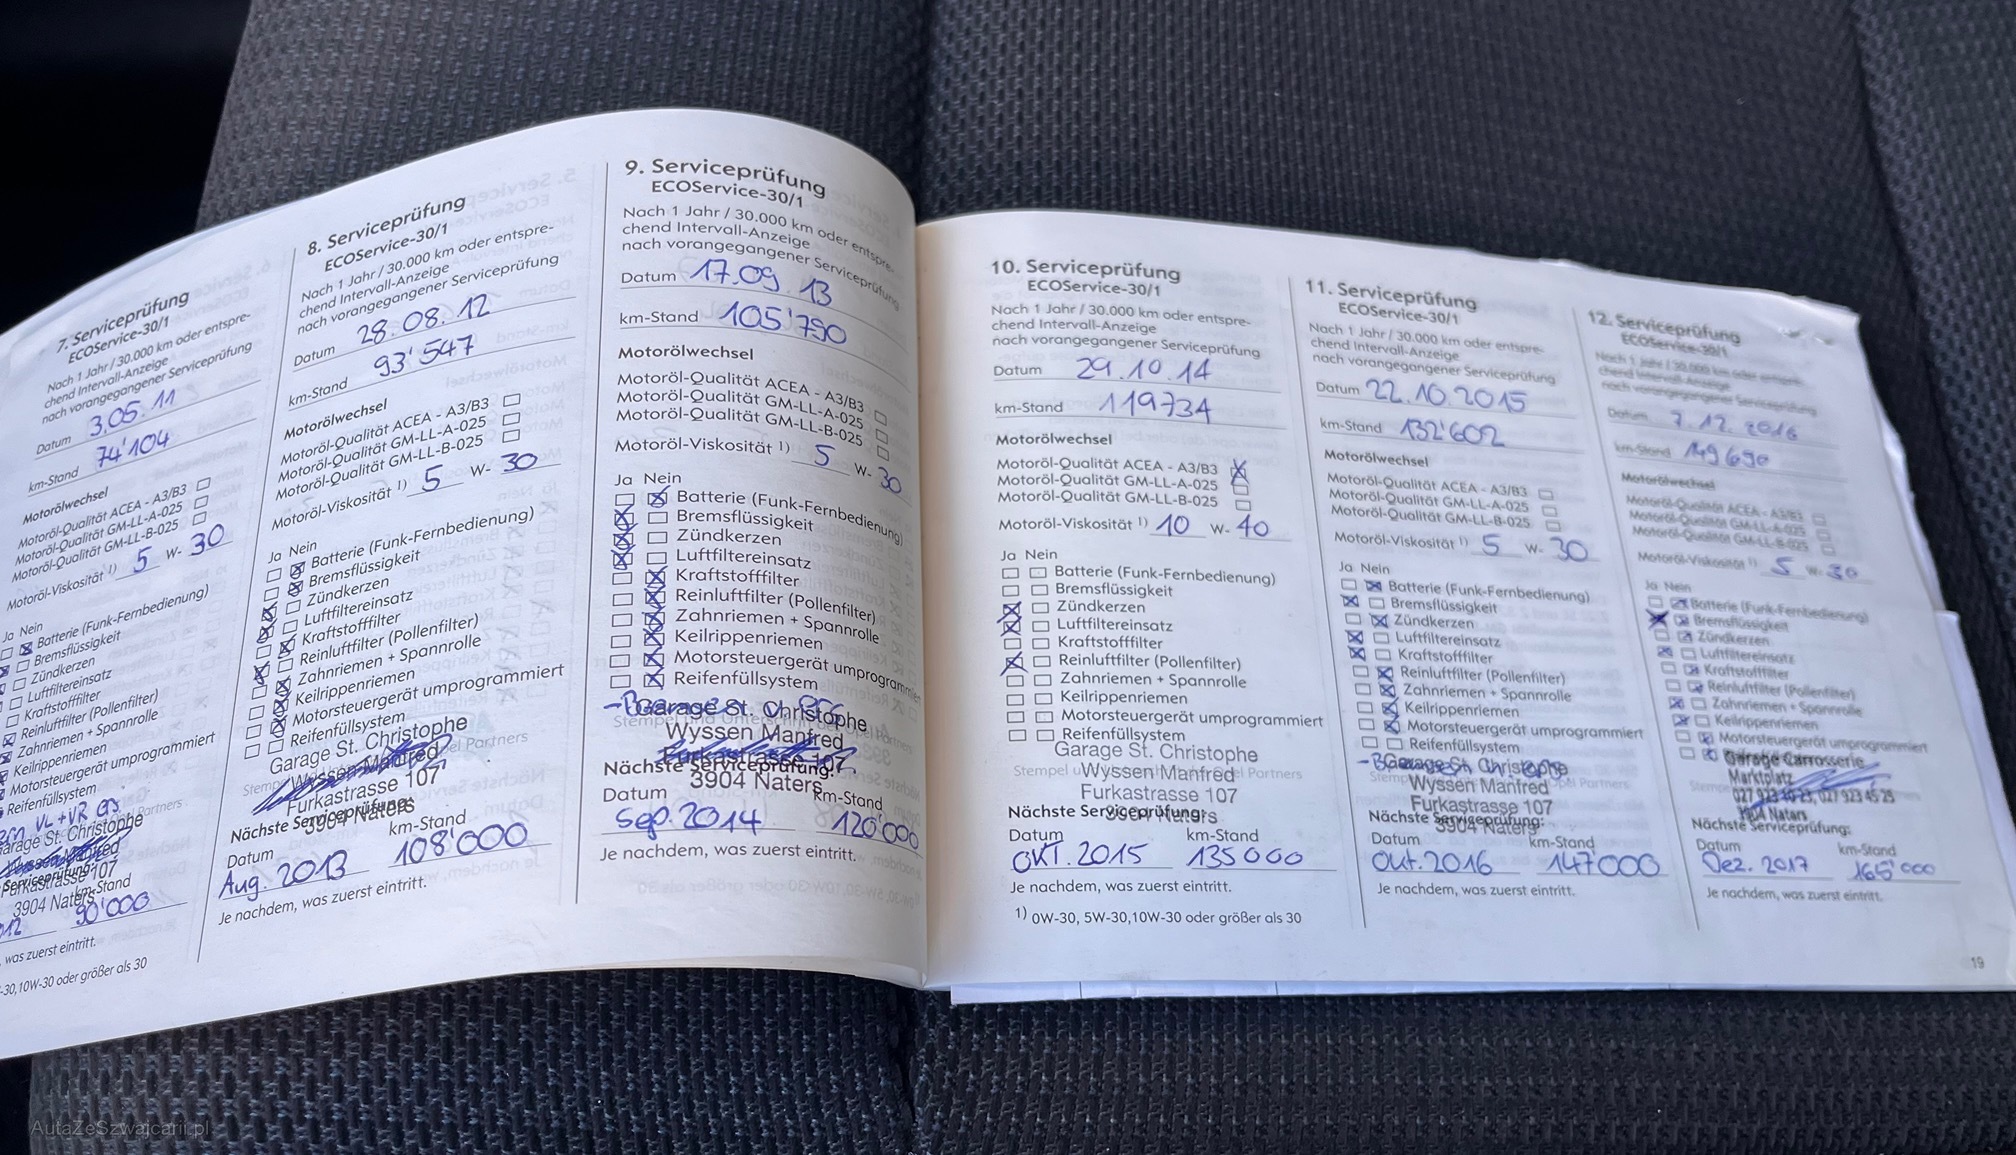 7. Serviceprüfung
ECOService-30/1
Nach 1 Jahr / 30.000 km oder entspre-
chend Intervall-Anzeige
nach vorangegangener Serviceprüfung
Datum 3.05.11
km-Stand 74'104
Motorölwechsel
Motoröl-Qualität ACEA - A3/B3
Motoröl-Qualität GM-LL-A-025
Motoröl-Qualität GM-LL-B-025
Motoröl-Viskosität 1) 5 W- 30
Ja Nein
Batterie (Funk-Fernbedienung)
Bremsflüssigkeit
Zündkerzen
Luftfiltereinsatz
Kraftstofffilter
Reinluftfilter (Pollenfilter)
Zahnriemen + Spannrolle
Keilrippenriemen
Motorsteuergerät umprogrammiert
Reifenfüllsystem
VL + VR
Garage St. Christophe
Partners
Furkastrasse 107
Serviceprüfung:
3904 Naters
km-Stand
90'000
was zuerst eintritt.
10W-30 oder größer als 30
8. Serviceprüfung
ECOService-30/1
Nach 1 Jahr / 30.000 km oder entspre-
chend Intervall-Anzeige
nach vorangegangener Serviceprüfung
Datum 28.08.12
km-Stand 93'547
Motorölwechsel
Motoröl-Qualität ACEA - A3/B3
Motoröl-Qualität GM-LL-A-025
Motoröl-Qualität GM-LL-B-025
Motoröl-Viskosität 1) 5 W- 30
Ja Nein
Batterie (Funk-Fernbedienung)
Bremsflüssigkeit
Zündkerzen
Luftfiltereinsatz
Kraftstofffilter
Reinluftfilter (Pollenfilter)
Zahnriemen + Spannrolle
Keilrippenriemen
Motorsteuergerät umprogrammiert
Reifenfüllsystem
Garage St. Christophe
Wyssen Manfred
Furkastrasse 107
3904 Naters
Nächste Serviceprüfung:
Datum km-Stand
Aug. 2013 108'000
Je nachdem, was zuerst eintritt.
9. Serviceprüfung
ECOService-30/1
Nach 1 Jahr / 30.000 km oder entspre-
chend Intervall-Anzeige
nach vorangegangener Serviceprüfung
Datum 17.09.13
km-Stand 105'790
Motorölwechsel
Motoröl-Qualität ACEA - A3/B3
Motoröl-Qualität GM-LL-A-025
Motoröl-Qualität GM-LL-B-025
Motoröl-Viskosität 1) 5 W- 30
Ja Nein
Batterie (Funk-Fernbedienung)
Bremsflüssigkeit
Zündkerzen
Luftfiltereinsatz
Kraftstofffilter
Reinluftfilter (Pollenfilter)
Zahnriemen + Spannrolle
Keilrippenriemen
Motorsteuergerät umprogrammiert
Reifenfüllsystem
Garage St. Christophe
Wyssen Manfred
Furkastrasse 107
3904 Naters
Nächste Serviceprüfung:
Datum km-Stand
Sep. 2014 120'000
Je nachdem, was zuerst eintritt.
10. Serviceprüfung
ECOService-30/1
Nach 1 Jahr / 30.000 km oder entspre-
chend Intervall-Anzeige
nach vorangegangener Serviceprüfung
Datum 29.10.14
km-Stand 119734
Motorölwechsel
Motoröl-Qualität ACEA - A3/B3
Motoröl-Qualität GM-LL-A-025
Motoröl-Qualität GM-LL-B-025
Motoröl-Viskosität 1) 10 W- 40
Ja Nein
Batterie (Funk-Fernbedienung)
Bremsflüssigkeit
Zündkerzen
Luftfiltereinsatz
Kraftstofffilter
Reinluftfilter (Pollenfilter)
Zahnriemen + Spannrolle
Keilrippenriemen
Motorsteuergerät umprogrammiert
Reifenfüllsystem
Garage St. Christophe
Wyssen Manfred
Furkastrasse 107
3904 Naters
Nächste Serviceprüfung:
Datum km-Stand
OKT. 2015 135000
Je nachdem, was zuerst eintritt.
1) 0W-30, 5W-30,10W-30 oder größer als 30
11. Serviceprüfung
ECOService-30/1
Nach 1 Jahr / 30.000 km oder entspre-
chend Intervall-Anzeige
nach vorangegangener Serviceprüfung
Datum 22.10.2015
km-Stand 132'602
Motorölwechsel
Motoröl-Qualität ACEA - A3/B3
Motoröl-Qualität GM-LL-A-025
Motoröl-Qualität GM-LL-B-025
Motoröl-Viskosität 1) 5 W- 30
Ja Nein
Batterie (Funk-Fernbedienung)
Bremsflüssigkeit
Zündkerzen
Luftfiltereinsatz
Kraftstofffilter
Reinluftfilter (Pollenfilter)
Zahnriemen + Spannrolle
Keilrippenriemen
Motorsteuergerät umprogrammiert
Reifenfüllsystem
Garage St. Christophe
Wyssen Manfred
Furkastrasse 107
3904 Naters
Nächste Serviceprüfung:
Datum km-Stand
Okt. 2016 147000
Je nachdem, was zuerst eintritt.
12. Serviceprüfung
ECOService-30/1
Nach 1 Jahr / 30.000 km oder entspre-
chend Intervall-Anzeige
nach vorangegangener Serviceprüfung
Datum 7.12.2016
km-Stand 149690
Motorölwechsel
Motoröl-Qualität ACEA - A3/B3
Motoröl-Qualität GM-LL-A-025
Motoröl-Qualität GM-LL-B-025
Motoröl-Viskosität 1) 5 W- 30
Ja Nein
Batterie (Funk-Fernbedienung)
Bremsflüssigkeit
Zündkerzen
Luftfiltereinsatz
Kraftstofffilter
Reinluftfilter (Pollenfilter)
Zahnriemen + Spannrolle
Keilrippenriemen
Motorsteuergerät umprogrammiert
Garage Carrosserie
Marktplatz
027 923 45 25
3904 Naters
Nächste Serviceprüfung:
Datum km-Stand
Dez. 2017 165'000
Je nachdem, was zuerst eintritt.
19
AutaZeSzwajcarii.pl